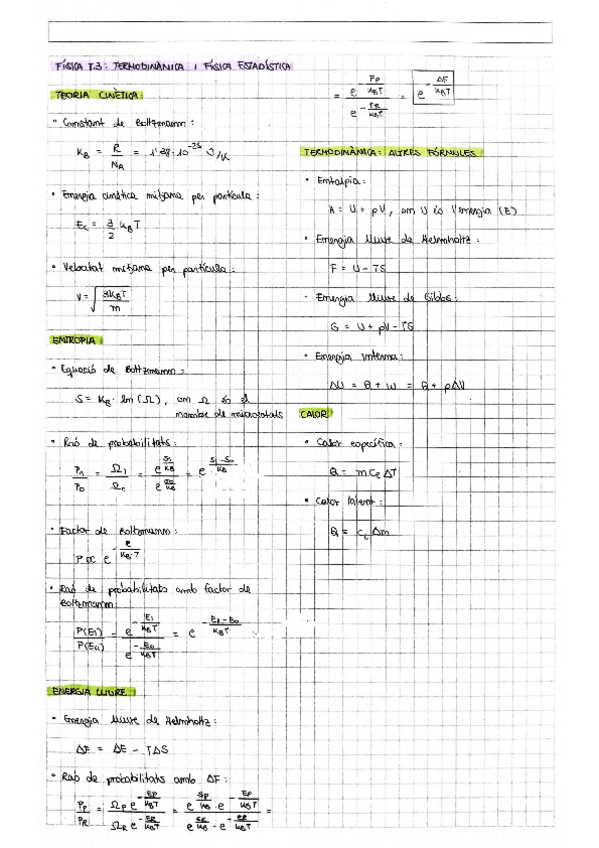 FÍSICA T.3: TERMODINÀMICA I FÍSICA ESTADÍSTICA
TEORIA CINÈTICA:
• Constant de Boltzmann:
K_B = R / N_A = 1'38·10^-23 J/K
• Energia cinètica mitjana per partícula:
E_c = 3/2 K_B T
• Velocitat mitjana per partícula:
V = √(3K_BT / m)
ENTROPIA:
• Equació de Boltzmann:
S = K_B · ln(Ω), on Ω és el
nombre de microestats
• Raó de probabilitats:
P_1 / P_0 = Ω_1 / = e^(S_1/K_B) / = e^(S_1-S_0 / K_B)
• Factor de Boltzmann:
P ∝ e^(-E / K_B·T)
• Raó de probabilitats amb factor de
Boltzmann:
P(E_1) / P(E_0) = e^(-E_1/K_BT) / e^(-E_0/K_BT) = e^(-E_1-E_0 / K_BT)
ENERGIA LLIURE:
• Energia lliure de Helmholtz:
ΔF = ΔE - TΔS
• Raó de probabilitats amb ΔF:
P_P / P_R = Ω_P e^(-E_P/K_BT) / Ω_R e^(-E_R/K_BT) = e^(S_P/K_B) · e^(-E_P/K_BT) / e^(S_R/K_B) · e^(-E_R/K_BT) =
= e^(-F_P/K_BT) / e^(-F_R/K_BT) = e^(-ΔF/K_BT)
TERMODINÀMICA: ALTRES FÓRMULES
• Entalpia:
= U + pV, on U és l'energia (E)
• Energia lliure de Helmholtz:
F = U - TS
- Energia lliure de Gibbs:
= U + pV - TS
• Energia interna:
ΔU = Q + W = Q + pΔV
CALOR
• Calor específica:
Q = m c_e ΔT
• Calor latent:
Q = Δm